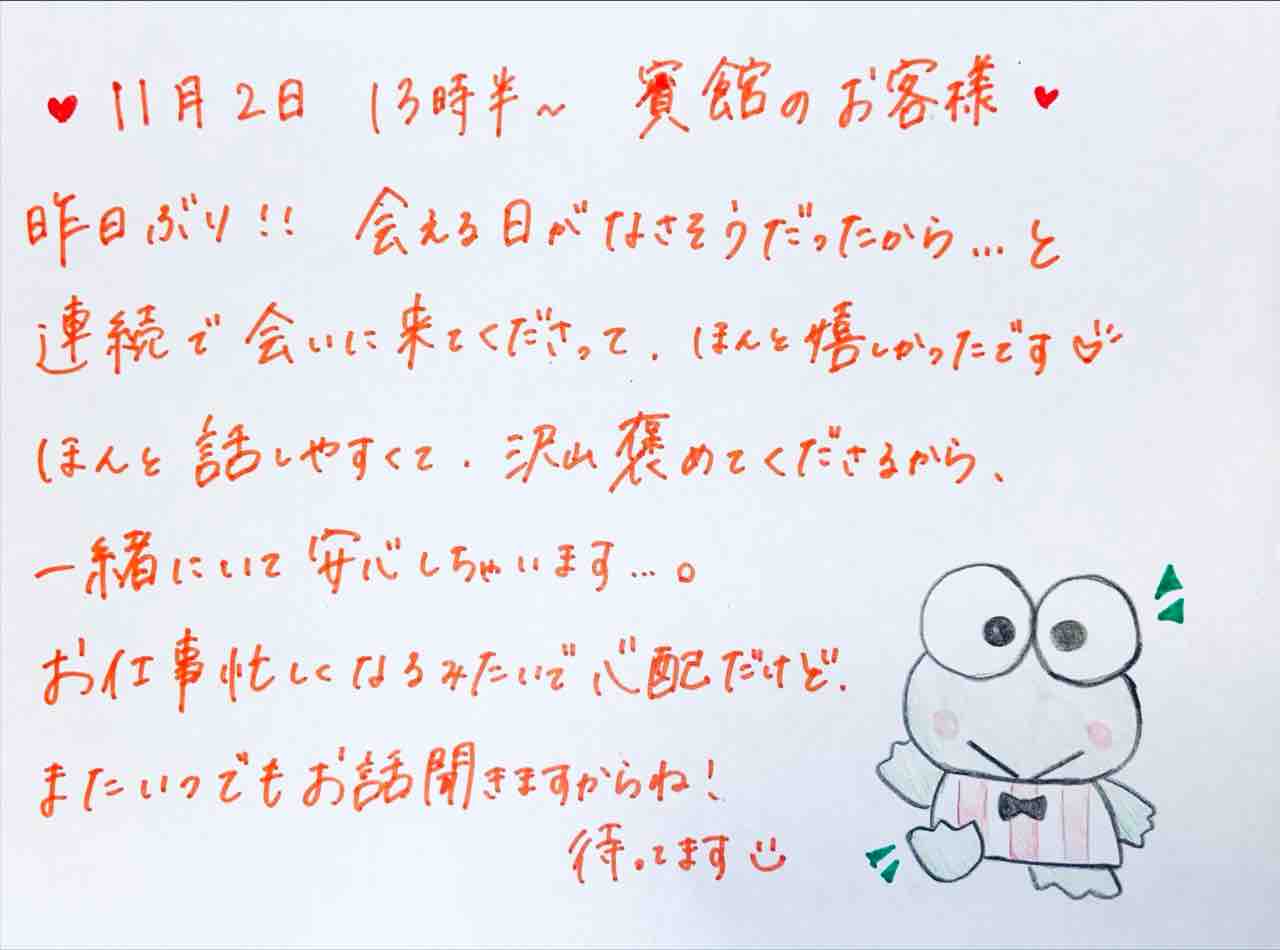 ♥ 11月2日 13時半~ 賓館のお客様 ♥
昨日ぶり!! 会える日がなさそうだったから...と
連続で会いに来てくださって、ほんと嬉しかったです
ほんと話しやすくて、沢山褒めてくださるから、
一緒にいて安心しちゃいます...。
お仕事忙しくなるみたいで心配だけど、
またいつでもお話聞きますからね!
待ってます